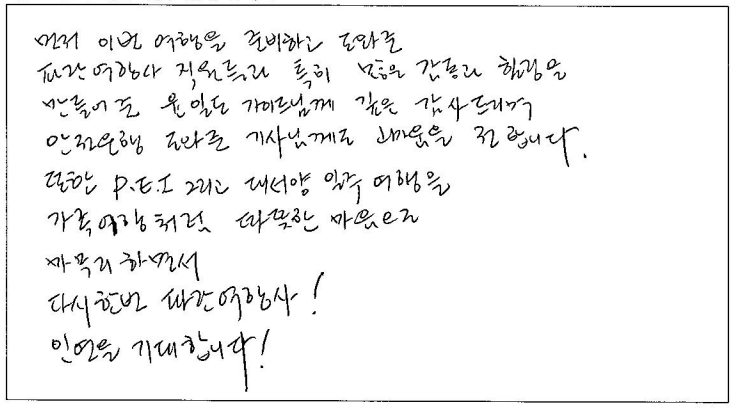 먼저 이번 여행을 준비하고 도와준
파란여행사 직원들과 특히 많은 감동과 힐링을
만들어 준 윤일도 가이드님께 깊은 감사드리며
안전운행 도와준 기사님께도 고마움을 전합니다.
또한 P.E.I 그리고 대서양 일주 여행을
가족여행처럼 따뜻한 마음으로
마무리하면서
다시한번 파란여행사!
인연을 기대합니다!